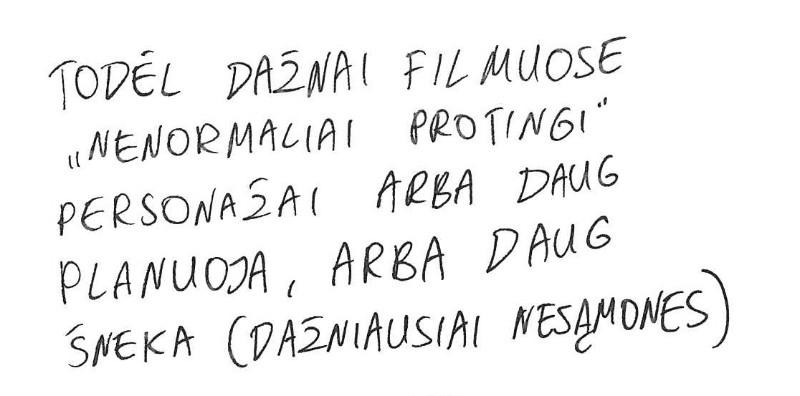 TODĖL DAŽNAI FILMUOSE
„NENORMALIAI PROTINGI“
PERSONAŽAI ARBA DAUG
PLANUOJA, ARBA DAUG
ŠNEKA (DAŽNIAUSIAI NESĄMONES)